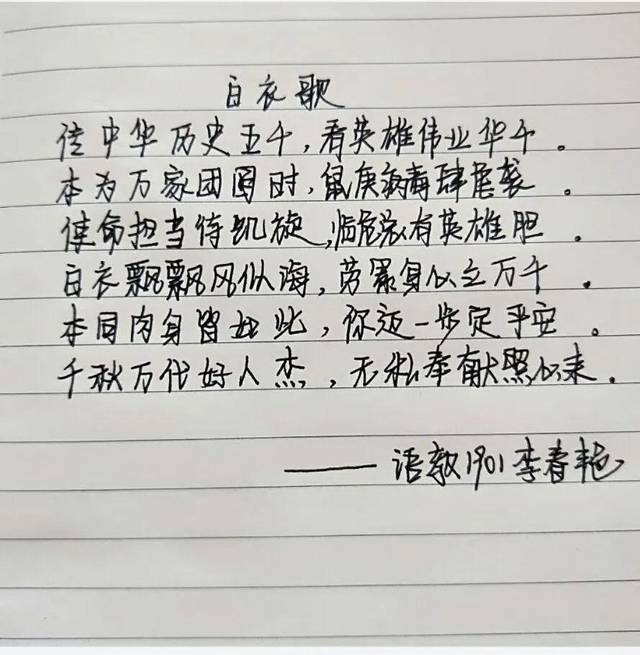 白衣歌
传中华历史五千，看英雄伟业华千。
本为万家团圆时，鼠庚病毒肆虐袭。
使命担当待凯旋，临危总有英雄胆。
白衣飘飘风似海，劳累身心立万千。
本同肉身皆如此，你迈一步定平安。
千秋万代好人杰，无私奉献照未来。
——语教1901李春艳